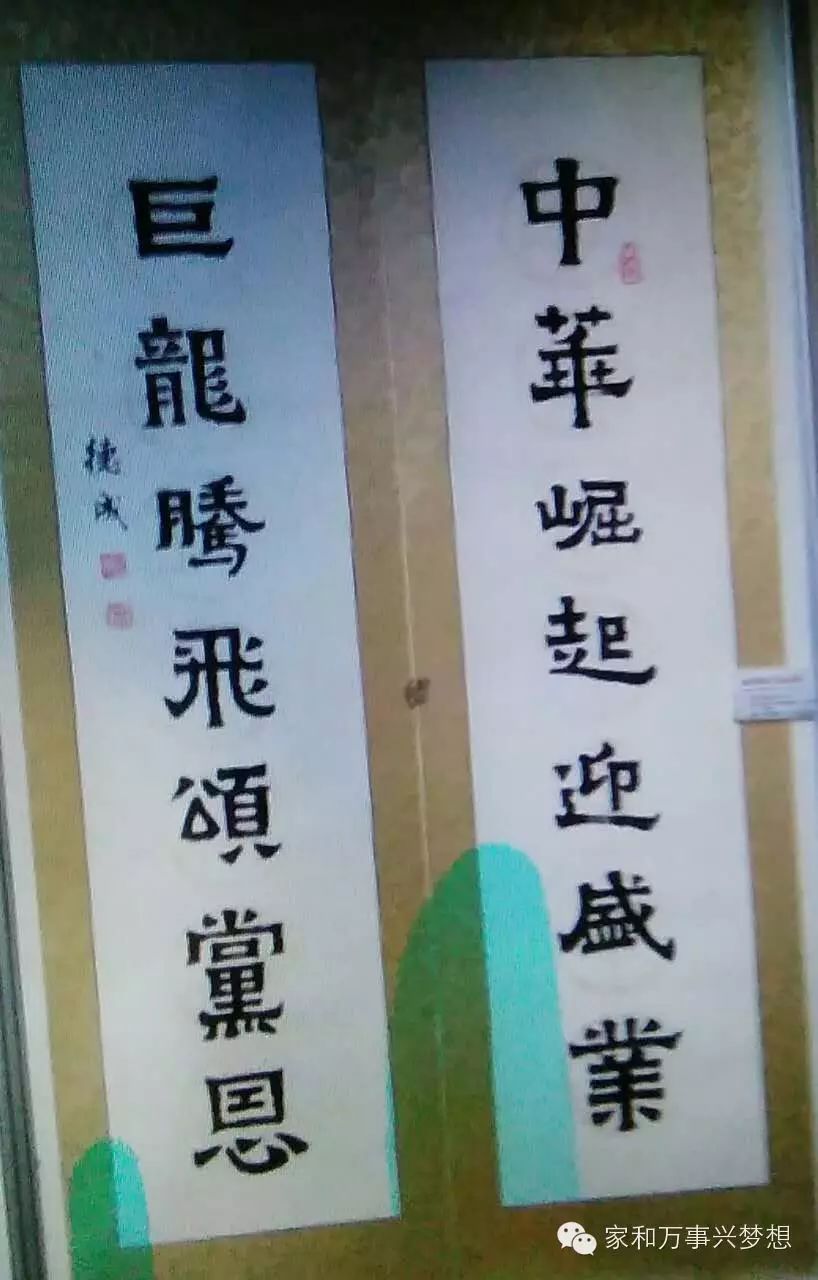 中華崛起迎盛業
巨龍騰飛頌黨恩
德成
家和万事兴梦想